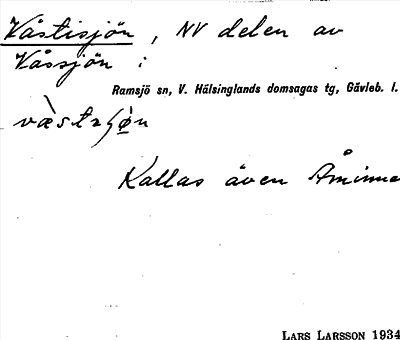 Västisjön, NV delen av
Våssjön i
Ramsjö sn, V. Hälsinglands domsagas tg, Gävleb. l.
Kallas även Åminne
LARS LARSSON 1934